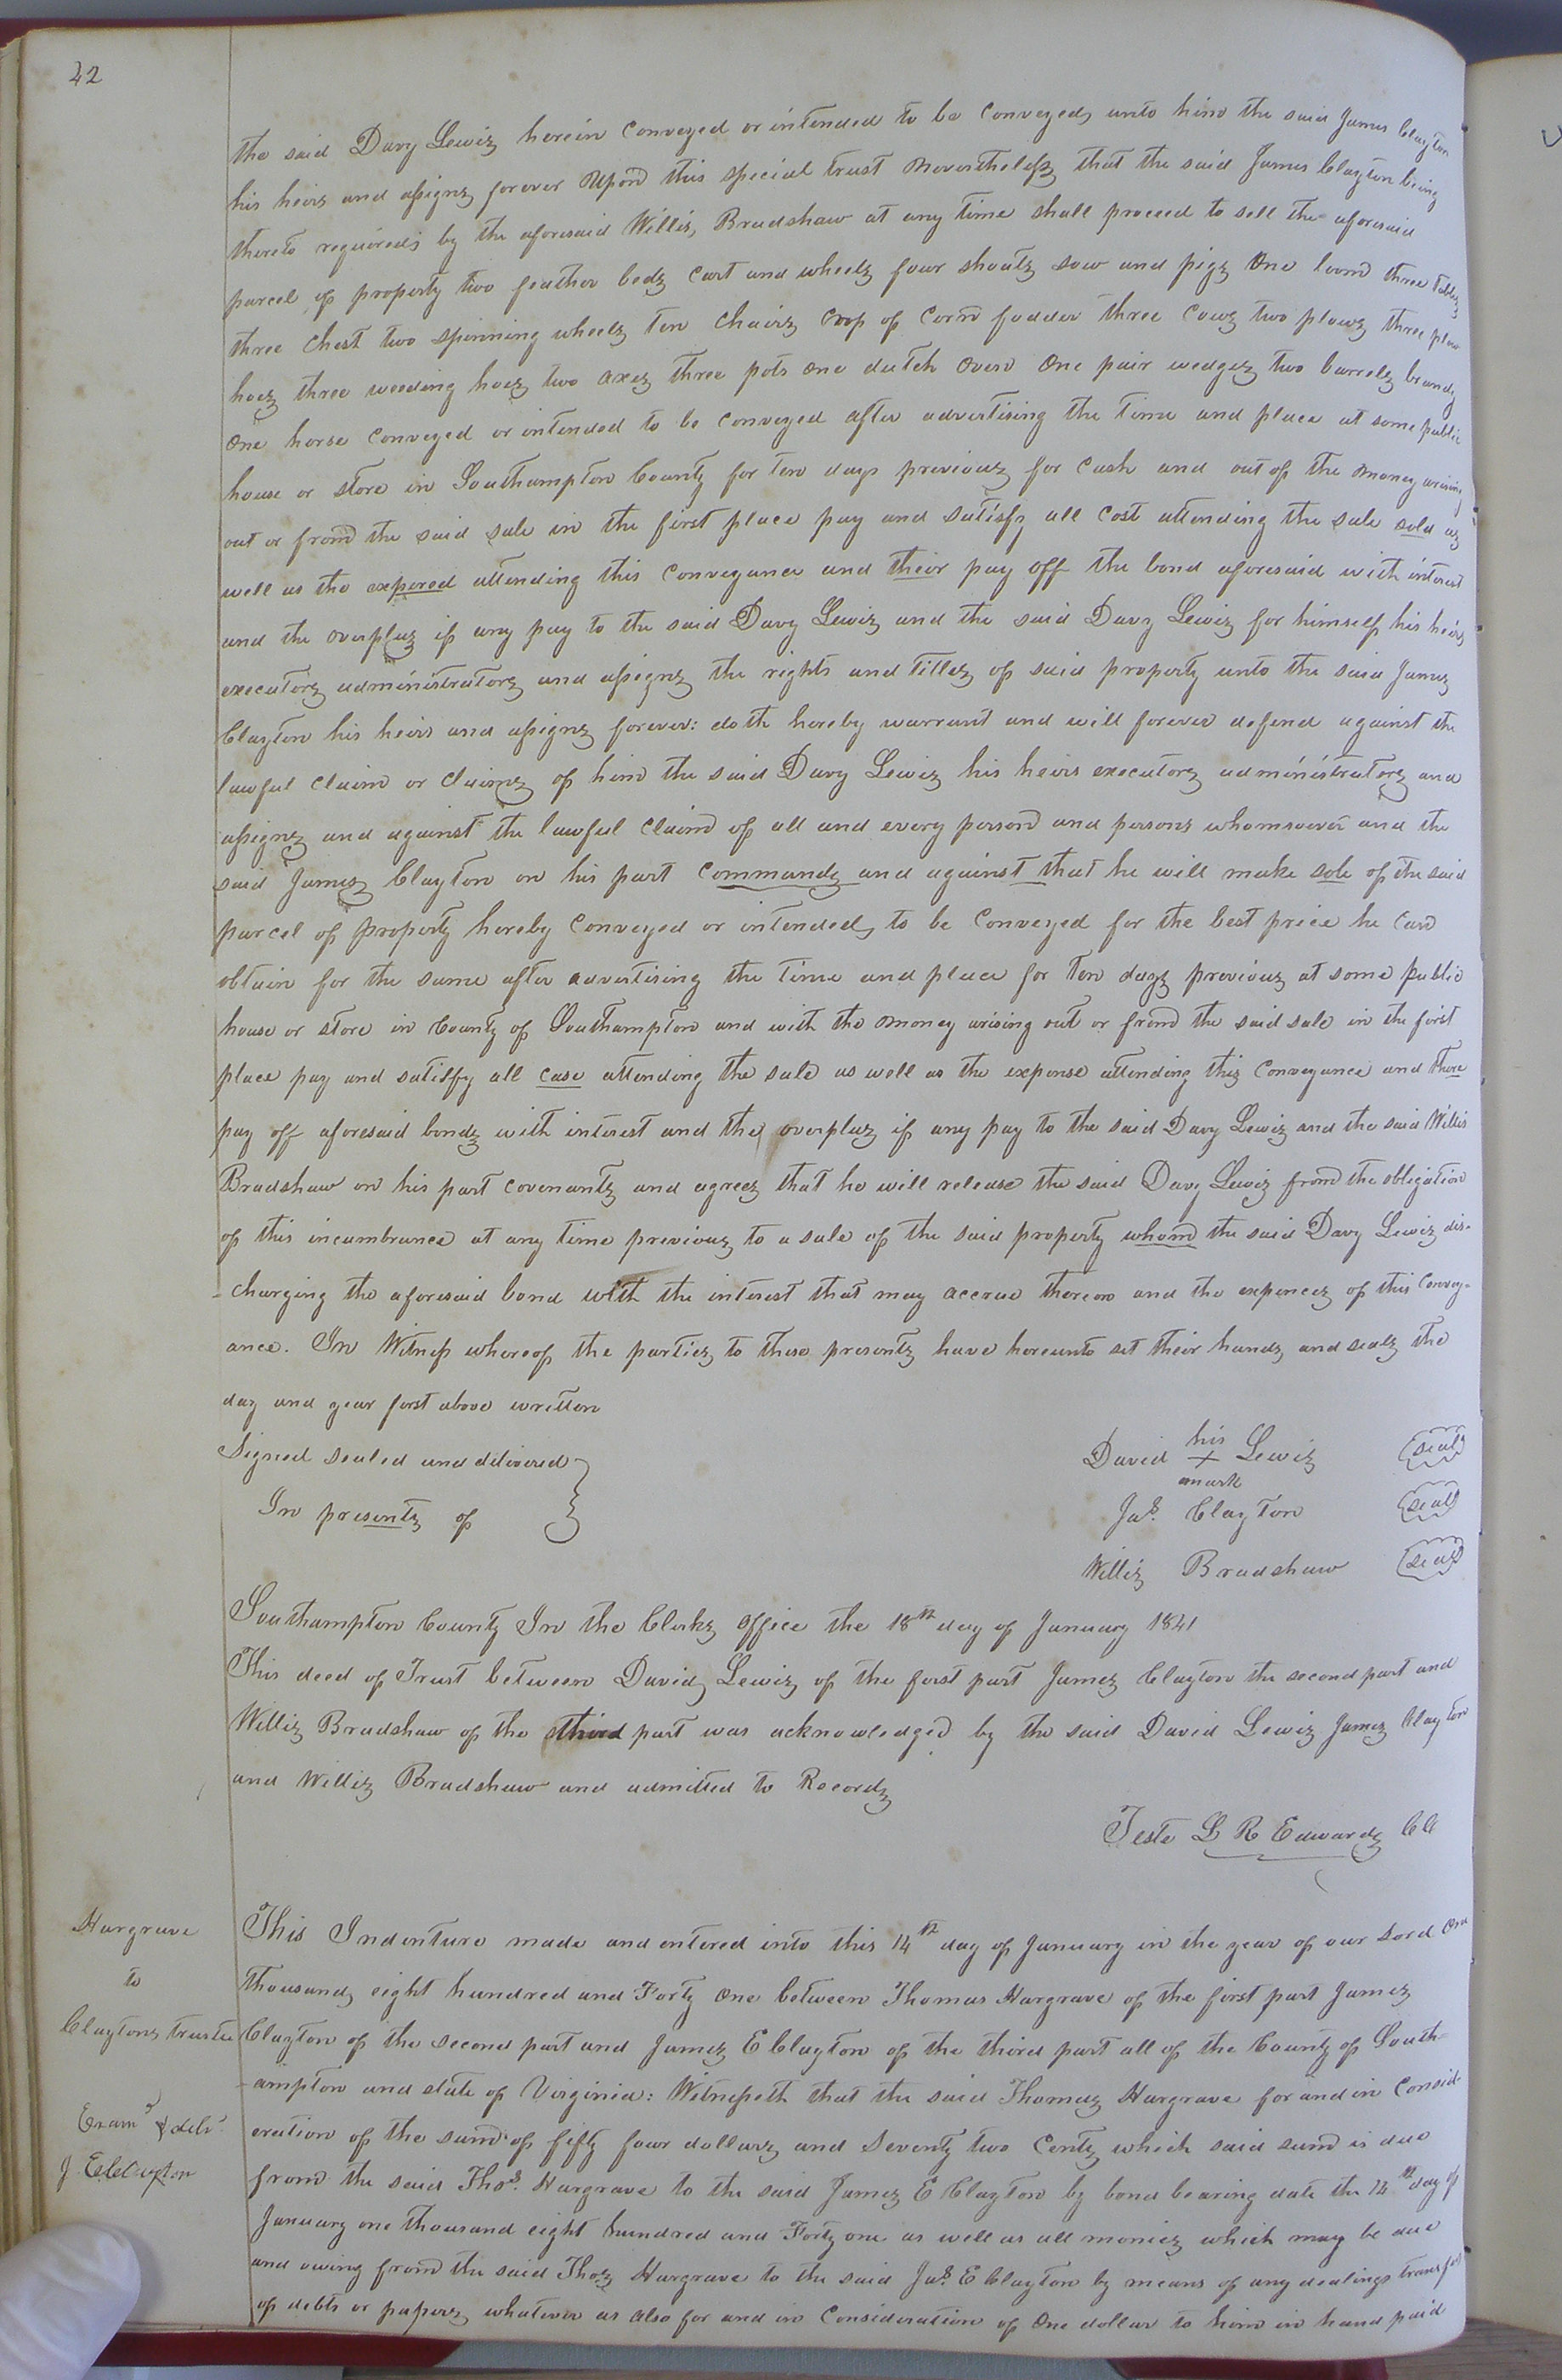 42
the said Davy Lewis herein conveyed or intended to be conveyed unto him the said James Clayton
his heirs and assigns forever upon this special trust nevertheless that the said James Clayton being
thereto required by the aforesaid Willis Bradshaw at any time shall proceed to sell the aforesaid
parcel of property two feather beds cart and wheels four shoats sow and pigs one loom three tables
three chest two spinning wheels ten chairs crop of corn fodder three cows two plows three plow
hoes three weeding hoes two axes three pots one dutch oven one pair wedges two barrels brandy
one horse conveyed or intended to be conveyed after advertising the time and place at some public
house or store in Southampton County for ten days previous for cash and out of the money arising
out or from the said sale in the first place pay and satisfy all cost attending the sale sold as
well as the expered attending this conveyance and their pay off the bond aforesaid with interest
and the overplus if any pay to the said Davy Lewis and the said Davy Lewis for himself his heirs
executors administrators and assigns the rights and titles of said property unto the said James
Clayton his heirs and assigns forever: doth hereby warrant and will forever defend against the
lawful claim or claims of him the said Davy Lewis his heirs executors administrators and
assigns and against the lawful claim of all and every person and persons whomsoever and the
said James Clayton on his part commands and against that he will make sole of the said
parcel of property hereby conveyed or intended to be conveyed for the best price he can
obtain for the same after advertising the time and place for ten days previous at some public
house or store in County of Southampton and with the money arising out or from the said sale in the first
place pay and satisfy all case attending the sale as well as the expense attending this conveyance and there
pay off aforesaid bonds with interest and the overplus if any pay to the said Davy Lewis and the said Willis
Bradshaw on his part covenants and agrees that he will release the said Davy Lewis from the obligation
of this incumbrance at any time previous to a sale of the said property whom the said Davy Lewis dis-
-charging the aforesaid bond with the interest that may accrue thereon and the expences of this convey-
ance. In Witness whereof the parties to these presents have hereunto set their hands and seals the
day and year first above written
Signed sealed and delivered
In presents of
David his X mark Lewis (seal)
Jas. Clayton (seal)
Willis Bradshaw (seal)
Southampton County In the Clerks office the 18th day of January 1841
This deed of Trust between David Lewis of the first part James Clayton the second part and
Willis Bradshaw of the third part was acknowledged by the said David Lewis James Clayton
and Willis Bradshaw and admitted to Record
Teste L R Edwards CC
Hargrave
to
Claytons trustee
Exam'd & deld.
J. E Clayton
This Indenture made and entered into this 14th day of January in the year of our Lord one
thousand eight hundred and Forty one between Thomas Hargrave of the first part James
Clayton of the second part and James E Clayton of the third part all of the County of South-
-ampton and state of Virginia: Witnesseth that the said Thomas Hargrave for and in consid-
eration of the sum of fifty four dollars and seventy two cents which said sum is due
from the said Thos. Hargrave to the said James E Clayton by bond bearing date the 14th day of
January one thousand eight hundred and Forty one as well as all monies which may be due
and owing from the said Thos Hargrave to the said Jas. E Clayton by means of any dealings transfer
of debts or papers whatever as also for and in consideration of one dollar to him in hand paid